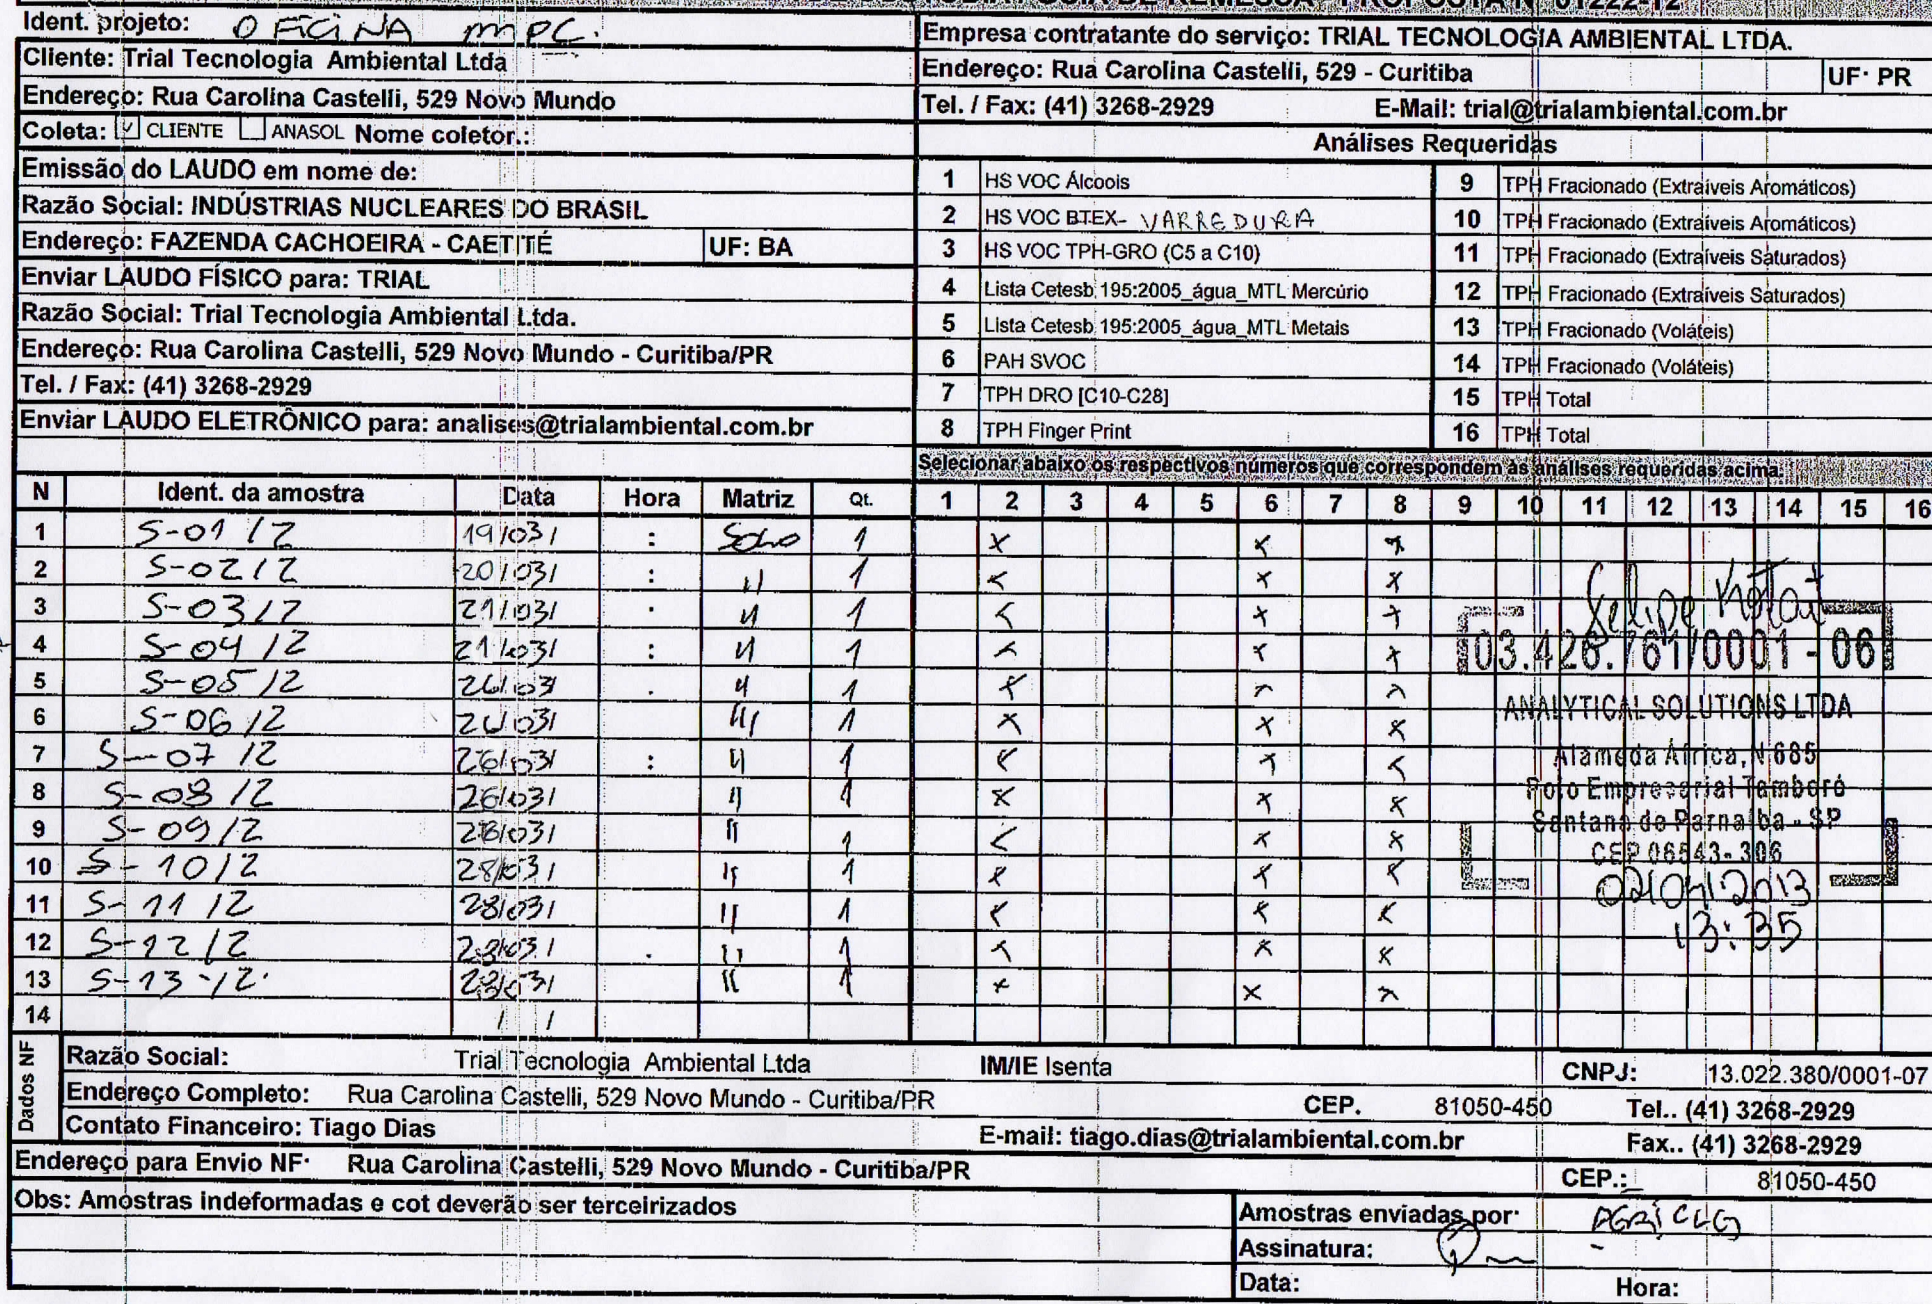 GUIA DE REMESSA - PROPOSTA Nº 01222-12
Ident. projeto: OFICINA MPC.
Cliente: Trial Tecnologia Ambiental Ltda
Endereço: Rua Carolina Castelli, 529 Novo Mundo
Coleta: CLIENTE ANASOL Nome coletor.:
Emissão do LAUDO em nome de:
Razão Social: INDÚSTRIAS NUCLEARES DO BRASIL
Endereço: FAZENDA CACHOEIRA - CAETITÉ UF: BA
Enviar LAUDO FÍSICO para: TRIAL
Razão Social: Trial Tecnologia Ambiental Ltda.
Endereço: Rua Carolina Castelli, 529 Novo Mundo - Curitiba/PR
Tel. / Fax: (41) 3268-2929
Enviar LAUDO ELETRÔNICO para: analises@trialambiental.com.br
Empresa contratante do serviço: TRIAL TECNOLOGIA AMBIENTAL LTDA.
Endereço: Rua Carolina Castelli, 529 - Curitiba UF: PR
Tel. / Fax: (41) 3268-2929 E-Mail: trial@trialambiental.com.br
Análises Requeridas
1 HS VOC Álcoois 9 TPH Fracionado (Extraíveis Aromáticos)
2 HS VOC BTEX- VARREDURA 10 TPH Fracionado (Extraíveis Aromáticos)
3 HS VOC TPH-GRO (C5 a C10) 11 TPH Fracionado (Extraíveis Saturados)
4 Lista Cetesb 195:2005_água_MTL Mercúrio 12 TPH Fracionado (Extraíveis Saturados)
5 Lista Cetesb 195:2005_água_MTL Metais 13 TPH Fracionado (Voláteis)
6 PAH SVOC 14 TPH Fracionado (Voláteis)
7 TPH DRO [C10-C28] 15 TPH Total
8 TPH Finger Print 16 TPH Total
Selecionar abaixo os respectivos números que correspondem as análises requeridas acima.
N Ident. da amostra Data Hora Matriz Qt. 1 2 3 4 5 6 7 8 9 10 11 12 13 14 15 16
1 S-01/2 19/03/ : Solo 1 x x x
2 S-02/2 20/03/ : 11 1 x x x
3 S-03/2 21/03/ 11 1 x x x
4 S-04/2 21/03/ : 11 1 x x x
5 S-05/2 26/03/ 11 1 x x x
6 S-06/2 26/03/ 11 1 x x x
7 S-07/2 26/03/ : 11 1 x x x
8 S-08/2 26/03/ 11 1 x x x
9 S-09/2 11 1 x x x
10 S-10/2 28/03/ 11 1 x x x
11 S-11/2 28/03/ 11 1 x x x
12 S-12/2 28/03/ 11 1 x x x
13 S-13-/2. 28/03/ 11 1 x x x
14 / /
Felipe
03.426.761/0001-06
ANALYTICAL SOLUTIONS LTDA
Alameda África, N 685
Polo Empresarial Tamboré
Santana de Parnaíba - SP
CEP 06543-306
02/04/2013
13:35
Dados NF
Razão Social: Trial Tecnologia Ambiental Ltda IM/IE Isenta CNPJ: 13.022.380/0001-07
Endereço Completo: Rua Carolina Castelli, 529 Novo Mundo - Curitiba/PR CEP. 81050-450 Tel.. (41) 3268-2929
Contato Financeiro: Tiago Dias E-mail: tiago.dias@trialambiental.com.br Fax.. (41) 3268-2929
Endereço para Envio NF: Rua Carolina Castelli, 529 Novo Mundo - Curitiba/PR CEP.: 81050-450
Obs: Amostras indeformadas e cot deverão ser terceirizados
Amostras enviadas por:
Assinatura:
Data: Hora: